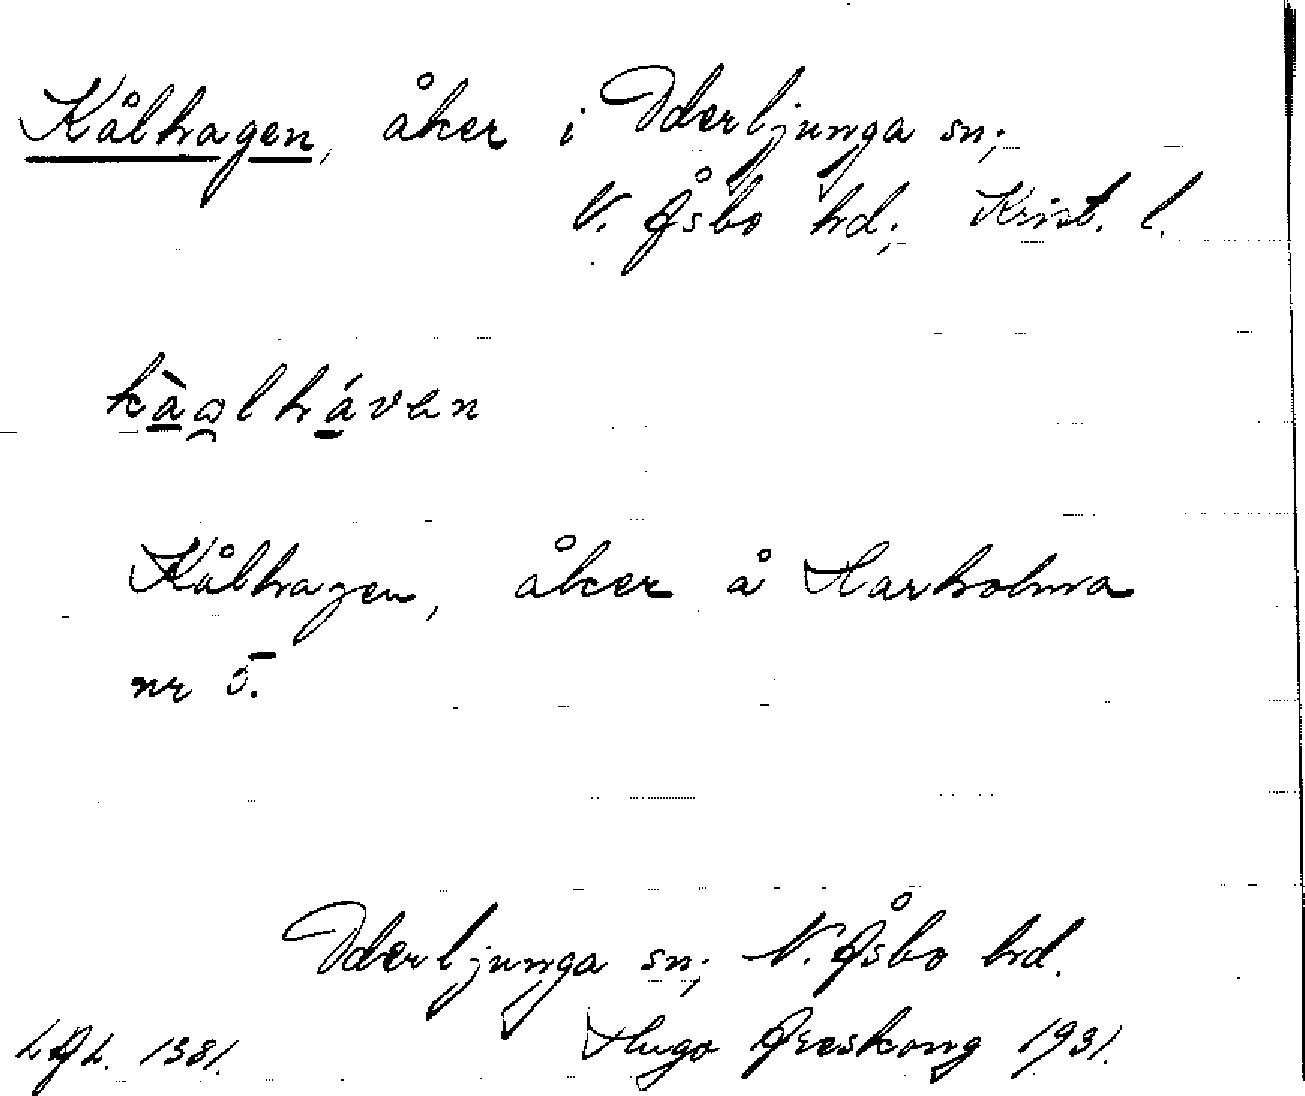 Kålhagen, åker i Øderljunga sn;
N. Åsbo hd; Krist. l.
kàa̯lhávan
Kålhagen, åker å Harholma
nr 5.
Øderljunga sn; N. Åsbo hd.
LAL. 1381. Hugo Areskoug 1931.